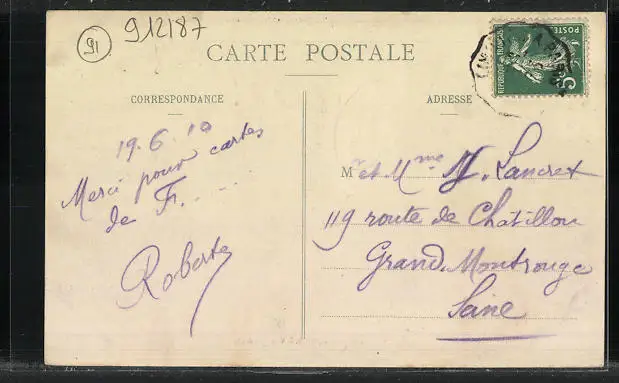 91
912187
CARTE POSTALE
CORRESPONDANCE
19.6.10
Merci pour cartes
de Fr. . . . .
Roberte
ADRESSE
Mr et Mme M. Lancret
119 route de Chatillon
Grand Montrouge
Seine
REPUBLIQUE FRANÇAISE
POSTES
5
A PARIS